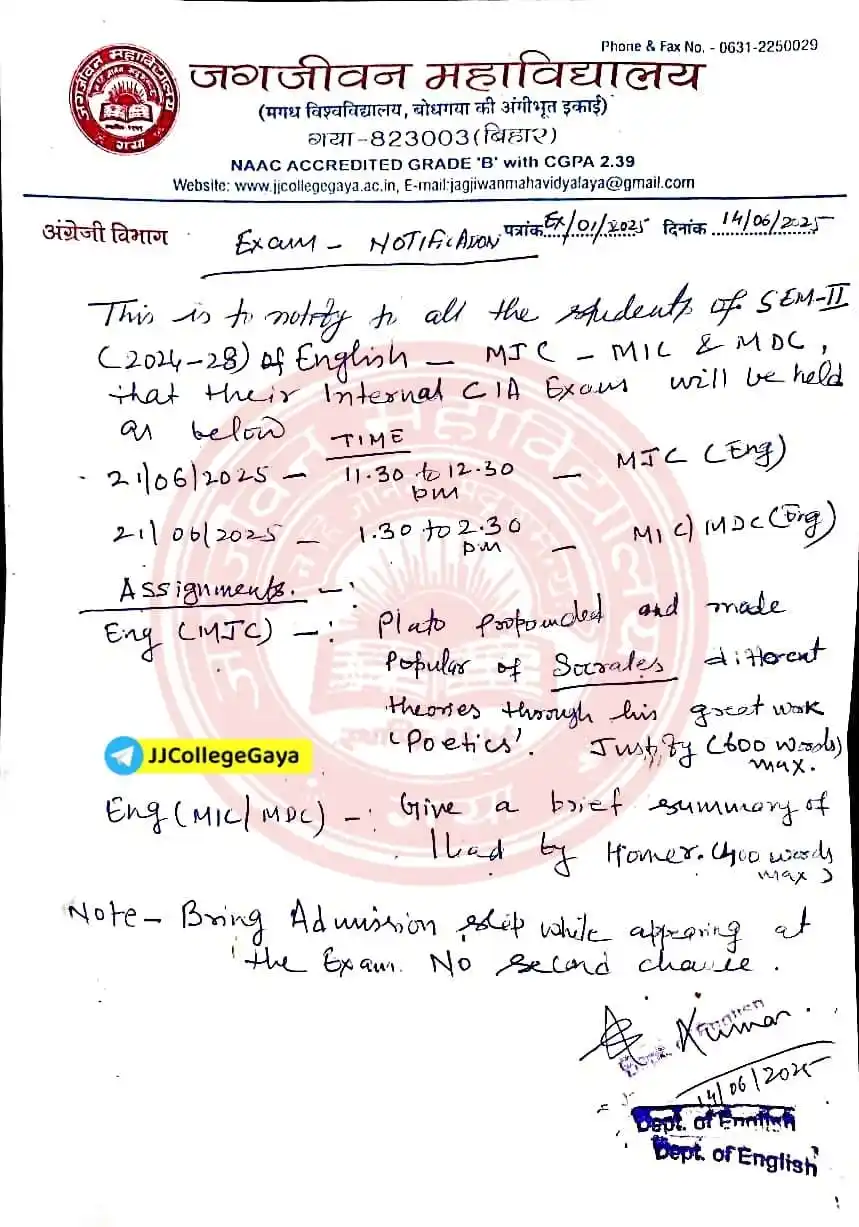 Phone & Fax No. - 0631-2250029
जगजीवन महाविद्यालय
(मगध विश्वविद्यालय, बोधगया की अंगीभूत इकाई)
गया-823003 (बिहार)
NAAC ACCREDITED GRADE 'B' with CGPA 2.39
Website: www.jjcollegegaya.ac.in, E-mail:jagjiwanmahavidyalaya@gmail.com
अंग्रेजी विभाग Exam - NOTIFICATION पत्रांक Ex/01/2025 दिनांक 14/06/2025
This is to notify to all the students of SEM-II
(2024-28) of English - MJC - MIC & MDC,
that their Internal CIA Exam will be held
as below
TIME
21/06/2025 - 11.30 to 12.30 pm - MJC (Eng)
21/06/2025 - 1.30 to 2.30 pm - MIC/MDC (Eng)
Assignments. -:
Eng (MJC) -: Plato propounded and made
Popular of Socrates different
theories through his great work
'Poetics'. Justify (600 words)
max.
JJCollegeGaya
Eng (MIC/MDC) -: Give a brief summary of
Iliad by Homer. (400 words
max)
Note - Bring Admission slip while appearing at
the Exam. No second chance.
Kumar
14/06/2025
Dept. of English
Dept. of English